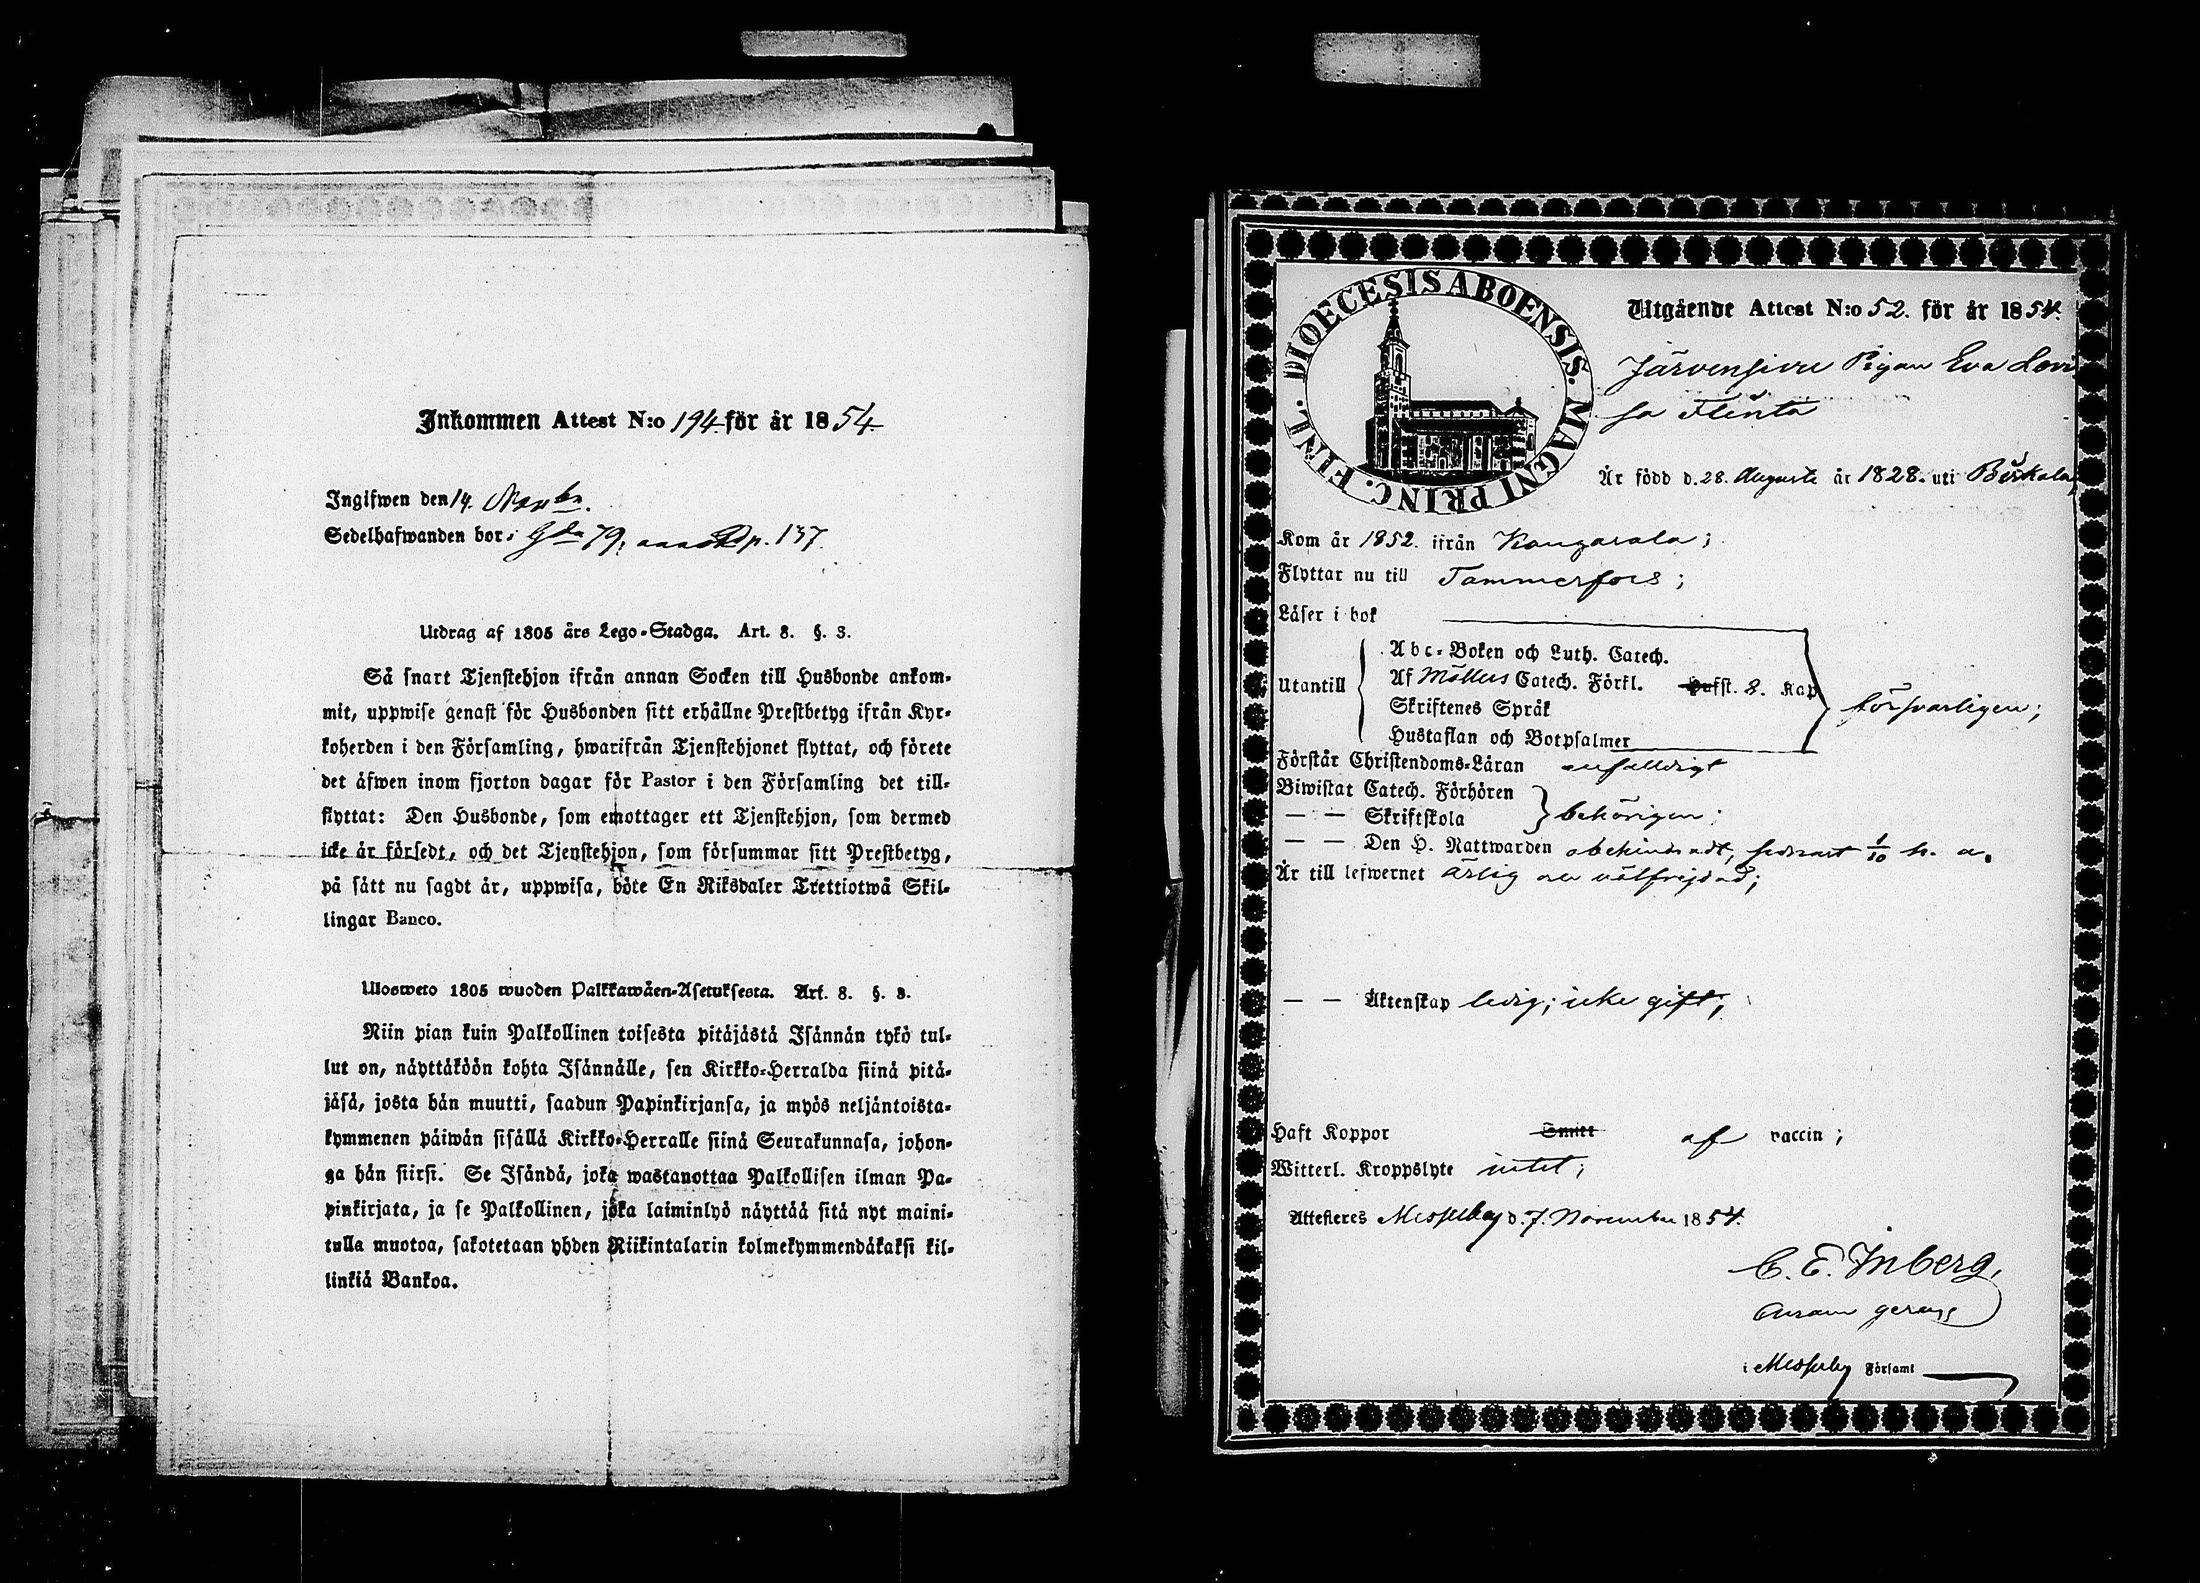 Inkommen Attest N:o 194 för år 1854.
Ingifwen den 14. Novbr.
Sedelhafwanden bor i Gdn 79, p. 137.
Utdrag af 1805 års Lego-Stadga. Art. 8. §. 3.
Så snart Tjenstehjon ifrån annan Socken till Husbonde ankom-
mit, uppwise genast för Husbonden sitt erhållne Prestbetyg ifrån Kyr-
koherden i den Församling, hwarifrån Tjenstehjonet flyttat, och förete
det äfwen inom fjorton dagar för Pastor i den Församling det till-
flyttat: Den Husbonde, som emottager ett Tjenstehjon, som dermed
icke är försedt, och det Tjenstehjon, som försummar sitt Prestbetyg,
på sätt nu sagdt är, uppwisa, böte En Riksdaler Trettiotwå Skil-
lingar Banco.
Ulosweto 1805 wuoden Palkkawäen-Asetuksesta. Art. 8. §. 3.
Niin pian kuin Palkollinen toisesta pitäjästä Isännän tykö tul-
lut on, näyttäköön kohta Isännälle, sen Kirkko-Herralda siinä pitä-
jäsä, josta hän muutti, saadun Papinkirjansa, ja myös neljäntoista-
kymmenen päiwän sisällä Kirkko-Herralle siinä Seurakunnasa, johon-
ga hän siirsi. Se Isändä, joka wastanottaa Palkollisen ilman Pa-
pinkirjata, ja se Palkollinen, joka laiminlyö näyttää sitä nyt maini-
tulla muotoa, sakotetaan yhden Riikintalarin kolmekymmendäkaksi kil-
linkiä Bankoa.
FINL. DIOECESIS ABOENSIS. MAGNI PRINC.
Utgående Attest N:o 52. för år 1854.
Järvensivu Pigan Eva Lovi
sa Flinta
Är född d. 28. Augusti år 1828. uti Birkala,
Kom år 1852. ifrån Kangasala;
Flyttar nu till Tammerfors;
Läser i bok
Utantill
Abc-Boken och Luth. Catech.
Af Möllers Catech. Förkl. Hufst. 8. Kap
Skriftenes Språk
Hustaflan och Botpsalmer
försvarligen;
Förstår Christendoms-Läran enfalldigt
Biwistat Catech. Förhören
— — Skriftskola
behörigen;
— — Den H. Nattwarden obehindradt, sednast 1/10 h. a.
Är till lefwernet ärlig och välfrejdad;
— — Äktenskap ledig; icke gift;
Haft Koppor Smitt af vaccin;
Witterl. Kroppslyte intet;
Attesteres Messuby d. 7. November 1854.
C. E. Inberg,
Curam gerens
i Messuby Församl